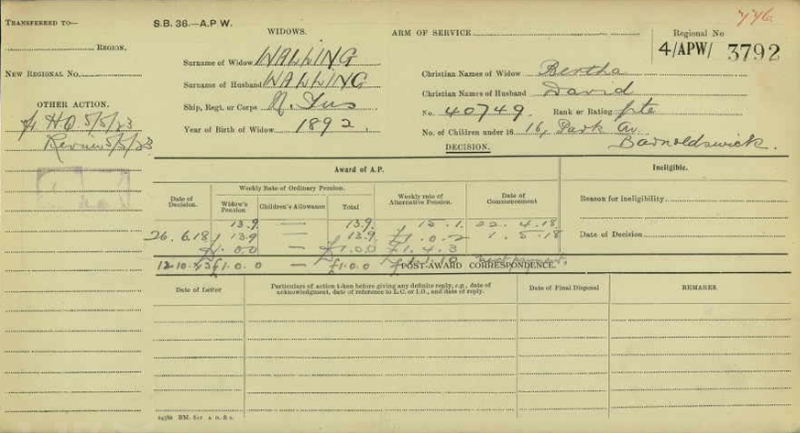 TRANSFERRED TO—
REGION.
NEW REGIONAL NO.
OTHER ACTION.
H.O. 5/5/23
Review 5/5/23
S.B. 36.—A.P.W.
WIDOWS.
ARM OF SERVICE
776
Regional No
4/APW/ 3792
Surname of Widow WALLING
Surname of Husband WALLING
Ship, Regt. or Corps N. Fus
Year of Birth of Widow 1892.
Christian Names of Widow Bertha
Christian Names of Husband David
No. 40749. Rank or Rating pte
No. of Children under 16 16, Park Av.
Barnoldswick.
DECISION.
Award of A.P.
Ineligible.
Date of Decision.
Weekly Rate of Ordinary Pension.
Widow's Pension
Children's Allowance
Total
Weekly rate of Alternative Pension.
Date of Commencement
Reason for Ineligibility
Date of Decision
13.9 — 13.9 15.1. 22.4.18
26.6.18 13.9 — 13.9 £1.0.2 1.5.18
£1.0.0 — £1.0.0 £1.4.3
£1.0.0 — £1.0.0
POST-AWARD CORRESPONDENCE.
Date of Letter
Particulars of action taken before giving any definite reply, e.g., date of acknowledgment, date of reference to L.C. or I.O., and date of reply.
Date of Final Disposal
REMARKS.